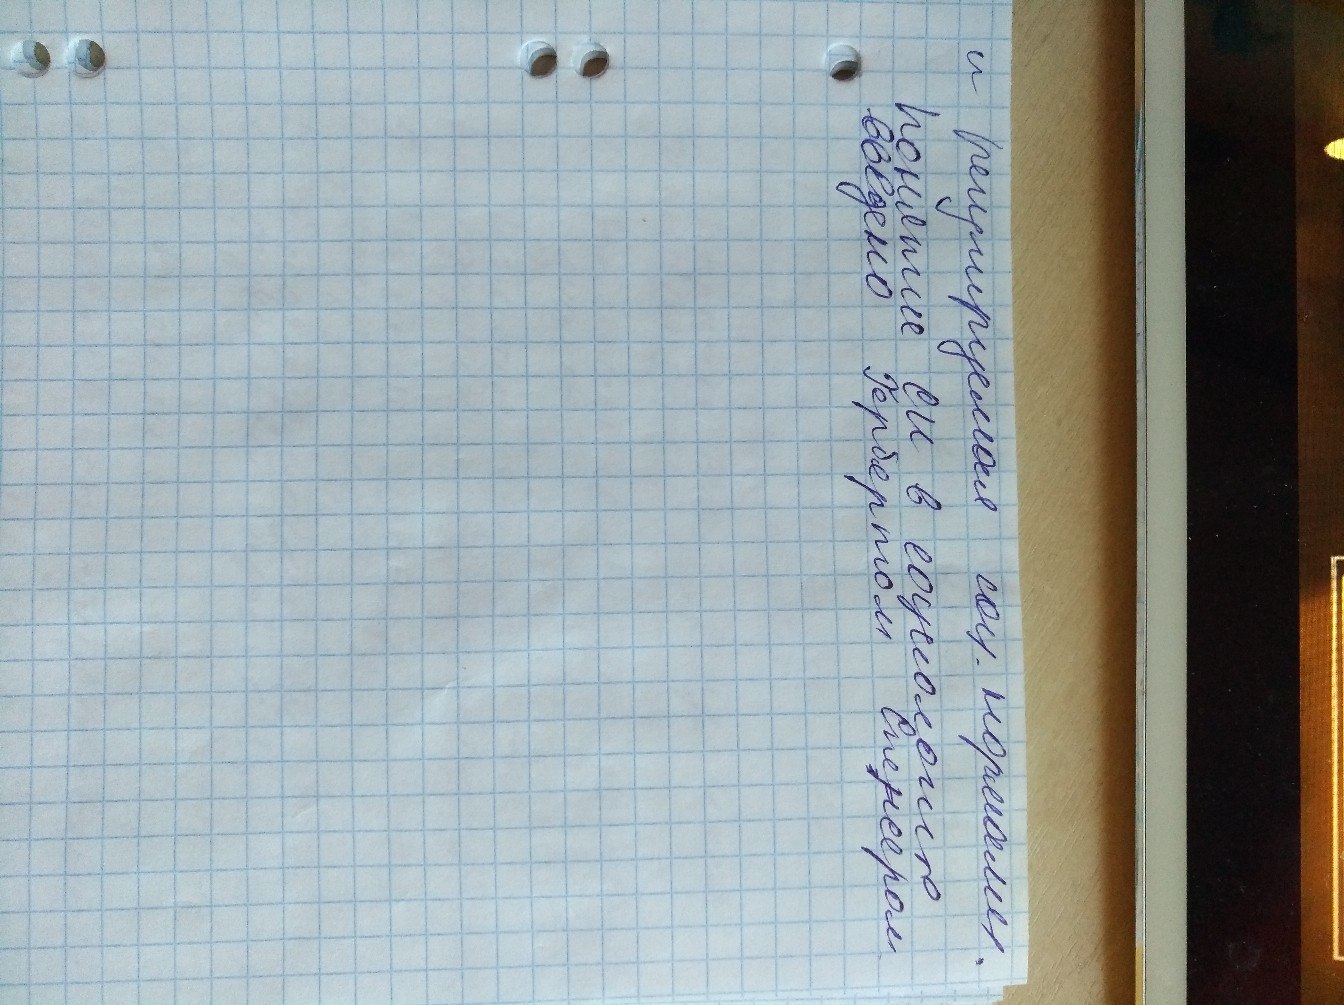 и регулируемая соц. нормами.
Понятие СИ в социологию
введено Гербертом Спенсером